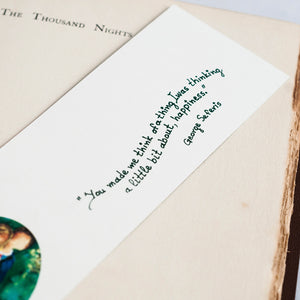 The Thousand Nights
"You made me think of a thing I was thinking
a little bit about, happiness."
George Seferis